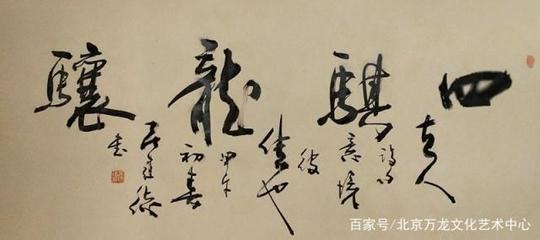 四騏龍驤
古人
意境
借也
甲午
初春
書
百家号/北京万龙文化艺术中心